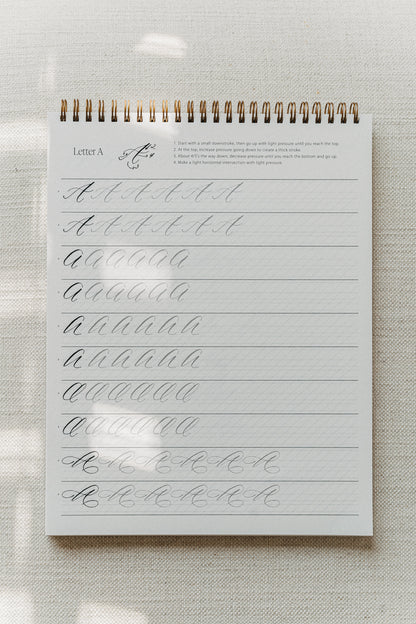 Letter A
1. Start with a small downstroke, then go up with light pressure until you reach the top.
2. At the top, increase pressure going down to create a thick stroke.
3. About 4/5's the way down, decrease pressure until you reach the bottom and go up.
4. Make a light horizontal intersection with light pressure.
A A A A A A
A A A A A A
A A A A A A
A A A A A A
A A A A A A
A A A A A A
A A A A A A
A A A A A A
A A A A A A
A A A A A A